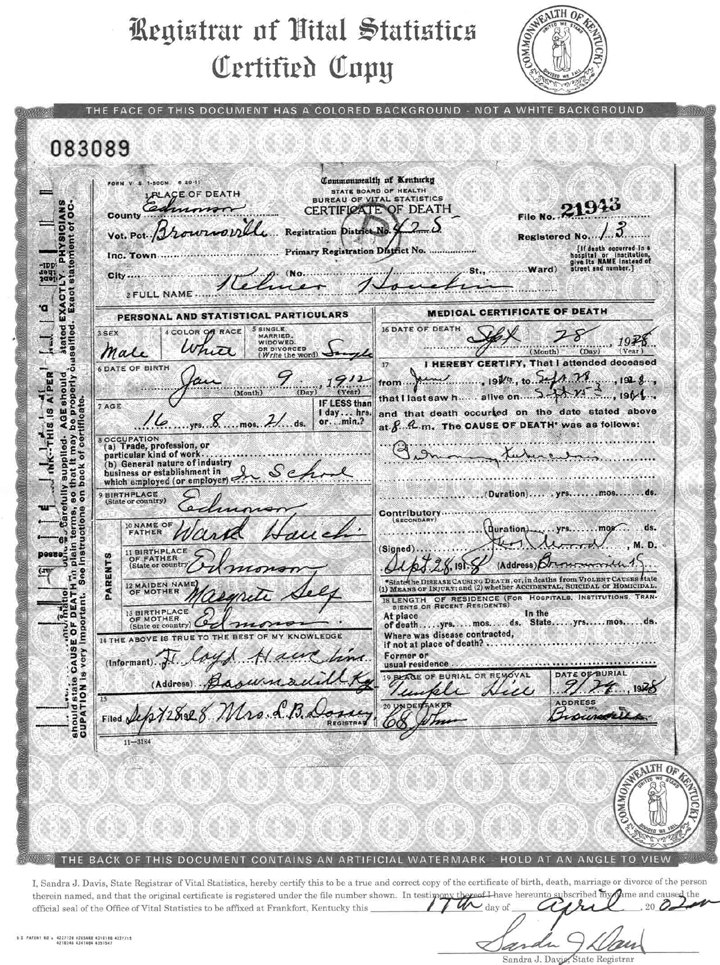 Registrar of Vital Statistics
Certified Copy
COMMONWEALTH OF KENTUCKY
UNITED WE STAND
DIVIDED WE FALL
THE FACE OF THIS DOCUMENT HAS A COLORED BACKGROUND - NOT A WHITE BACKGROUND
083089
FORM V. S. Commonwealth of Kentucky
STATE BOARD OF HEALTH
BUREAU OF VITAL STATISTICS
CERTIFICATE OF DEATH
1 PLACE OF DEATH
County Edmonson
Vot. Pct. Brownsville Registration District No. 425
File No. 21943
Registered No. 13
Inc. Town Primary Registration District No.
[If death occurred in a
hospital or institution,
give its NAME instead of
street and number.]
City (No. St., Ward)
2 FULL NAME Kelmer Houchin
PERSONAL AND STATISTICAL PARTICULARS
3 SEX Male
4 COLOR OR RACE White
5 SINGLE, MARRIED, WIDOWED OR DIVORCED (Write the word) Single
6 DATE OF BIRTH Jan 9, 1912
(Month) (Day) (Year)
7 AGE 16 yrs. 8 mos. 21 ds.
IF LESS than
1 day... hrs.
or... min.?
8 OCCUPATION
(a) Trade, profession, or
particular kind of work
(b) General nature of industry
business or establishment in
which employed (or employer) In School
9 BIRTHPLACE
(State or country) Edmonson
PARENTS
10 NAME OF
FATHER Ward Houchin
11 BIRTHPLACE
OF FATHER
(State or country) Edmonson
12 MAIDEN NAME
OF MOTHER Self
13 BIRTHPLACE
OF MOTHER
(State or country) Edmonson
14 THE ABOVE IS TRUE TO THE BEST OF MY KNOWLEDGE
(Informant) Floyd
(Address) Ky
15
Filed Sept 28 1928 Mrs. L.B. Dossey
REGISTRAR
11-3184
MEDICAL CERTIFICATE OF DEATH
16 DATE OF DEATH Sept 28 1928
(Month) (Day) (Year)
17 I HEREBY CERTIFY, That I attended deceased
from June, 19 to Sept 28, 1928,
that I last saw h alive on Sept
and that death occurred on the date stated above
at 8 a.m. The CAUSE OF DEATH* was as follows:
(Duration) yrs. mos. ds.
Contributory
(SECONDARY)
(Duration) yrs. mos. ds.
(Signed) M. D.
Sept 28, 1918 (Address) Brownsville Ky
*State the DISEASE CAUSING DEATH, or, in deaths from VIOLENT CAUSES state
(1) MEANS OF INJURY; and (2) whether ACCIDENTAL, SUICIDAL OR HOMICIDAL.
18 LENGTH OF RESIDENCE (FOR HOSPITALS, INSTITUTIONS, TRANSIENTS OR RECENT RESIDENTS)
At place In the
of death yrs. mos. ds. State yrs. mos. ds.
Where was disease contracted,
if not at place of death?
Former or
usual residence
19 PLACE OF BURIAL OR REMOVAL Temple Hill
DATE OF BURIAL 1928
20 UNDERTAKER
ADDRESS Brownsville
THE BACK OF THIS DOCUMENT CONTAINS AN ARTIFICIAL WATERMARK - HOLD AT AN ANGLE TO VIEW
COMMONWEALTH OF KENTUCKY
I, Sandra J. Davis, State Registrar of Vital Statistics, hereby certify this to be a true and correct copy of the certificate of birth, death, marriage or divorce of the person
therein named, and that the original certificate is registered under the file number shown. In testimony thereof I have hereunto subscribed my name and caused the
official seal of the Office of Vital Statistics to be affixed at Frankfort, Kentucky this 11th day of April, 2002
Sandra J Davis
Sandra J. Davis, State Registrar